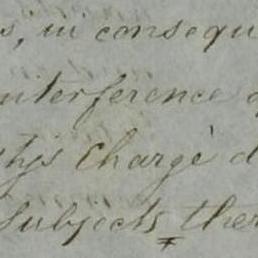 s, in consequ
interference o
ty's Chargè d
Subjects, ther